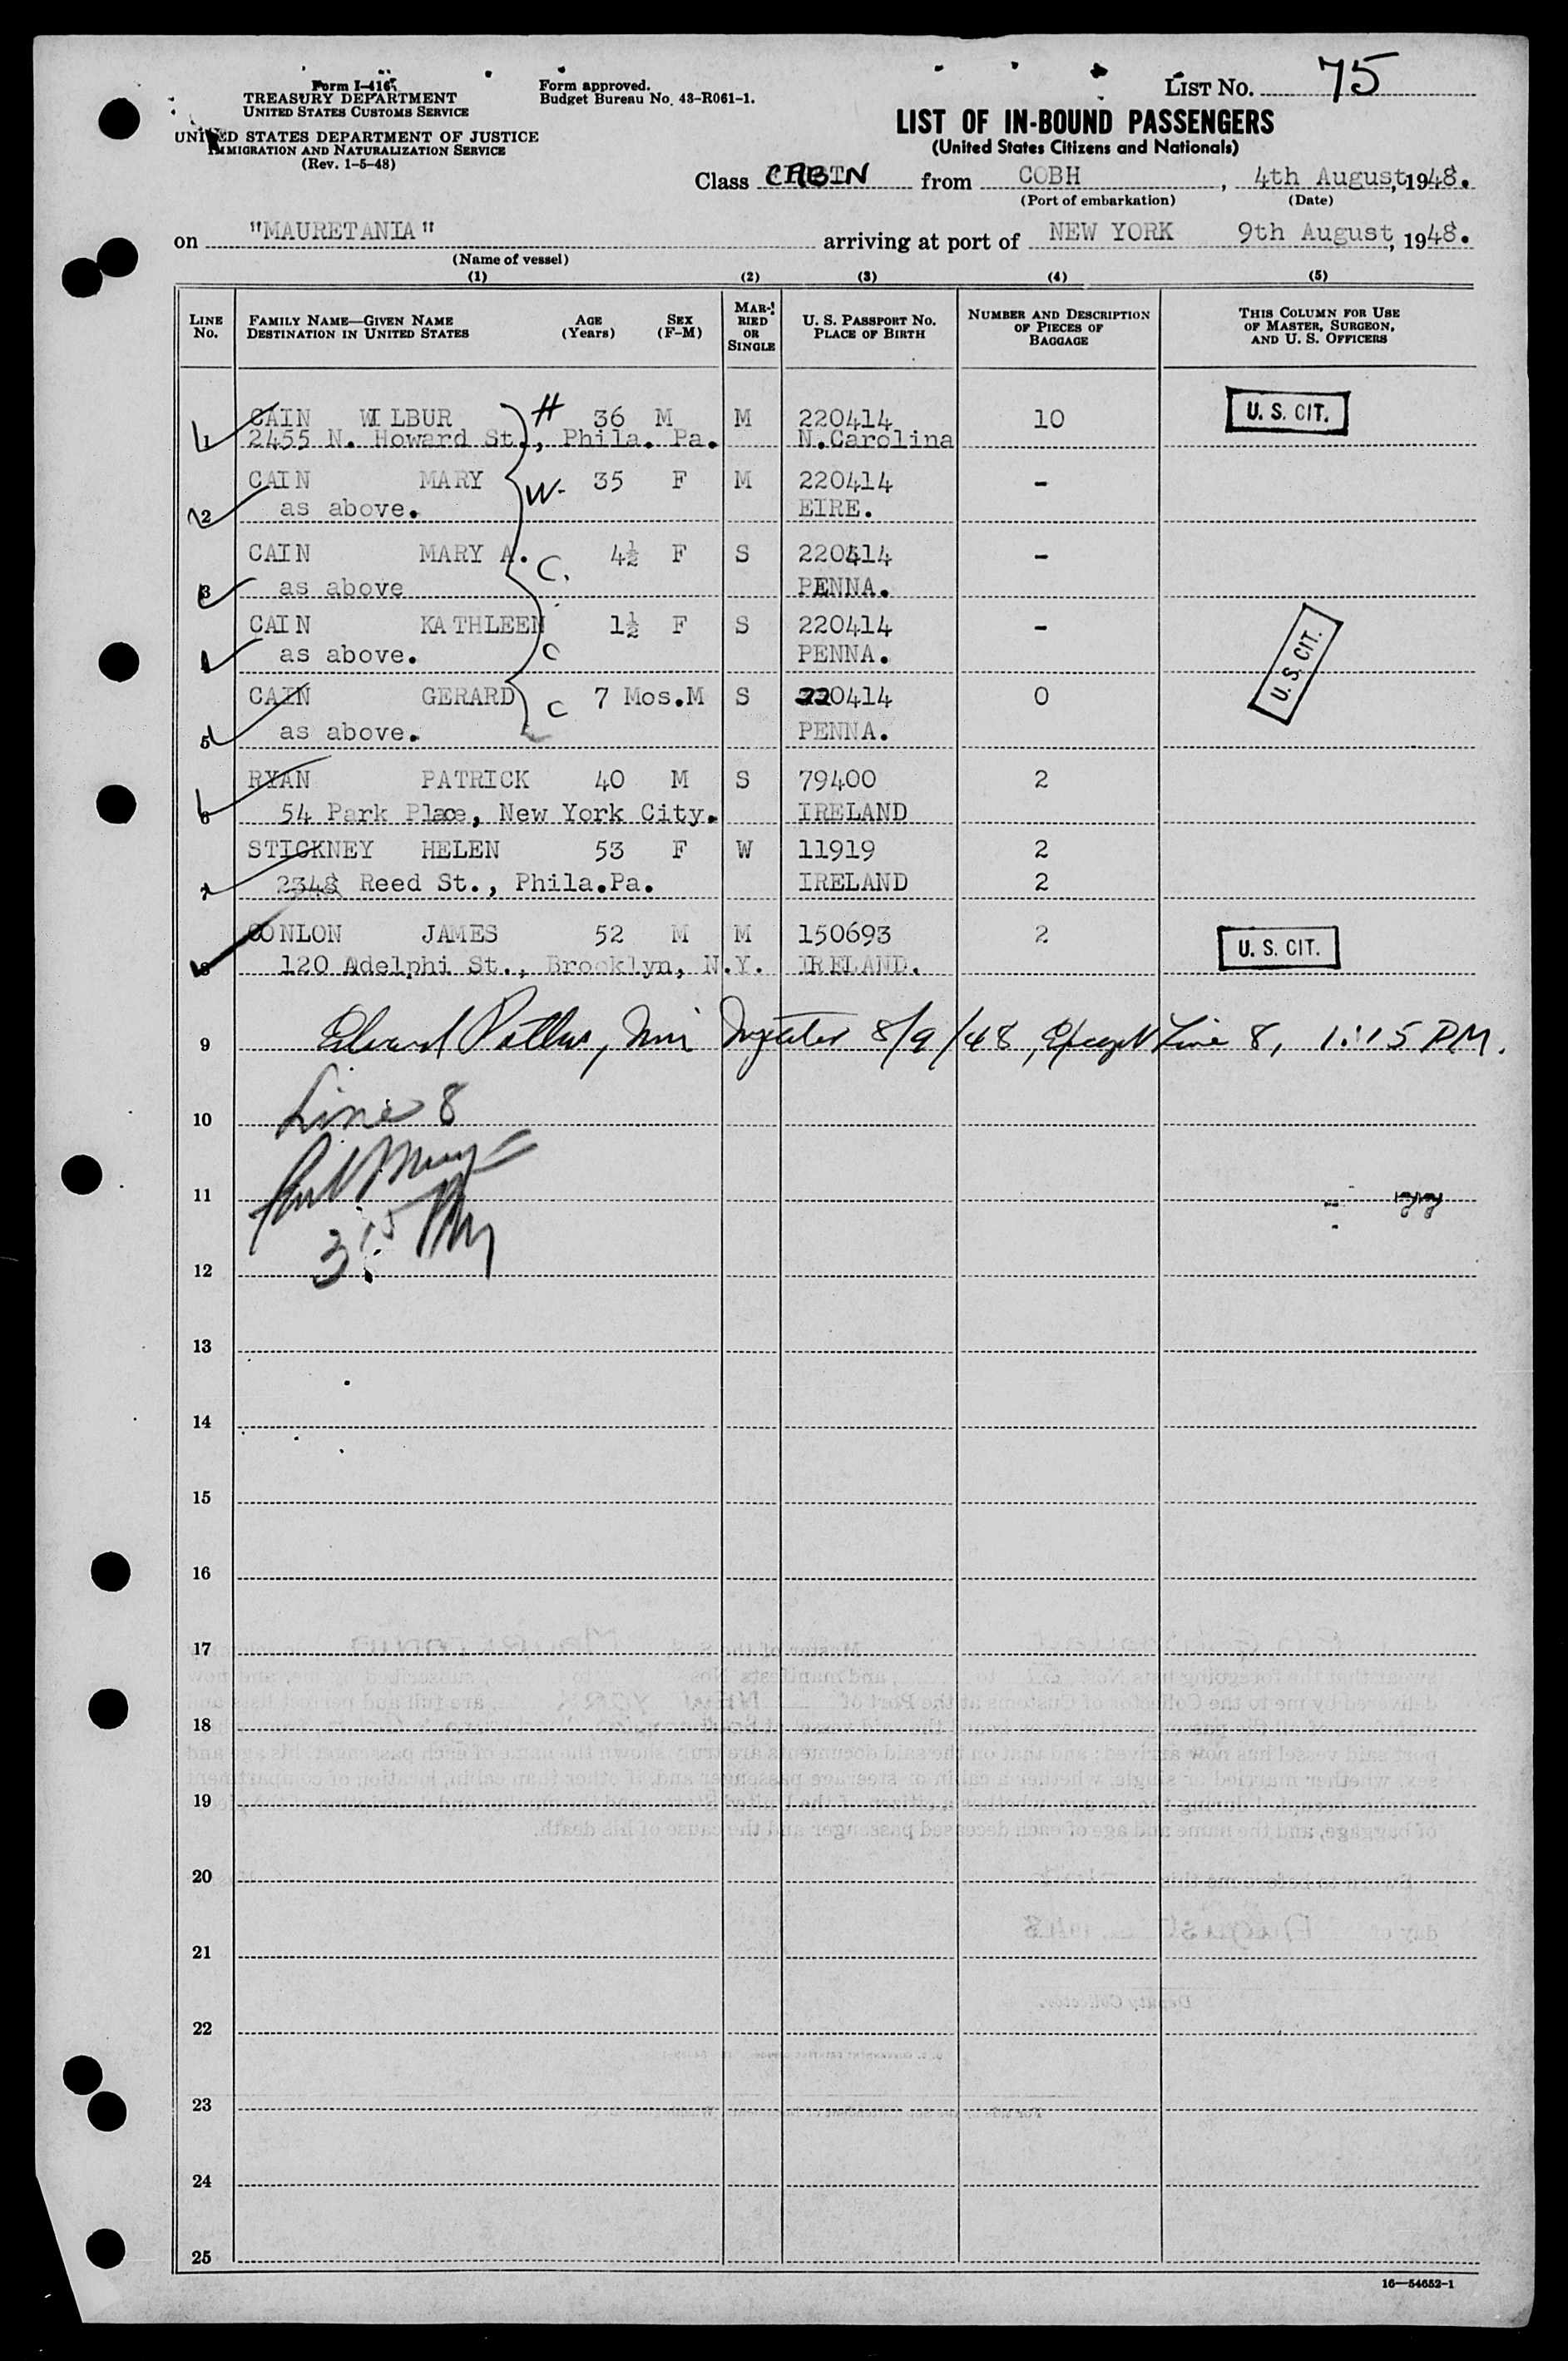 Form I-416
TREASURY DEPARTMENT
UNITED STATES CUSTOMS SERVICE
UNITED STATES DEPARTMENT OF JUSTICE
IMMIGRATION AND NATURALIZATION SERVICE
(Rev. 1-5-48)
Form approved.
Budget Bureau No. 43-R061-1.
LIST NO. 75
LIST OF IN-BOUND PASSENGERS
(United States Citizens and Nationals)
Class CABIN from COBH, 4th August, 1948.
(Port of embarkation) (Date)
on "MAURETANIA" arriving at port of NEW YORK 9th August, 1948.
(Name of vessel)
(1) (2) (3) (4) (5)
LINE No. FAMILY NAME—GIVEN NAME DESTINATION IN UNITED STATES AGE (Years) SEX (F-M) MARRIED OR SINGLE U. S. PASSPORT NO. PLACE OF BIRTH NUMBER AND DESCRIPTION OF PIECES OF BAGGAGE THIS COLUMN FOR USE OF MASTER, SURGEON, AND U. S. OFFICERS
CAIN WILBUR H 36 M M 220414 10 U. S. CIT.
1 2455 N. Howard St., Phila. Pa. N.Carolina
CAIN MARY W- 35 F M 220414 -
2 as above. EIRE.
CAIN MARY A. C. 4½ F S 220414 -
3 as above PENNA.
CAIN KATHLEEN 1½ F S 220414 - U. S. CIT.
4 as above. C PENNA.
CAIN GERARD C 7 Mos. M S 220414 0
5 as above. PENNA.
RYAN PATRICK 40 M S 79400 2
6 54 Park Place, New York City. IRELAND
STICKNEY HELEN 53 F W 11919 2
7 2348 Reed St., Phila.Pa. IRELAND 2
CONLON JAMES 52 M M 150693 2 U. S. CIT.
8 120 Adelphi St., Brooklyn, N.Y. IRELAND.
9 Edward 8/9/48, Except Line 8, 1:15 PM.
10 Line 8
11
3:15 PM
12
13
14
15
16
17
18
19
20
21
22
23
24
25
16—54652-1